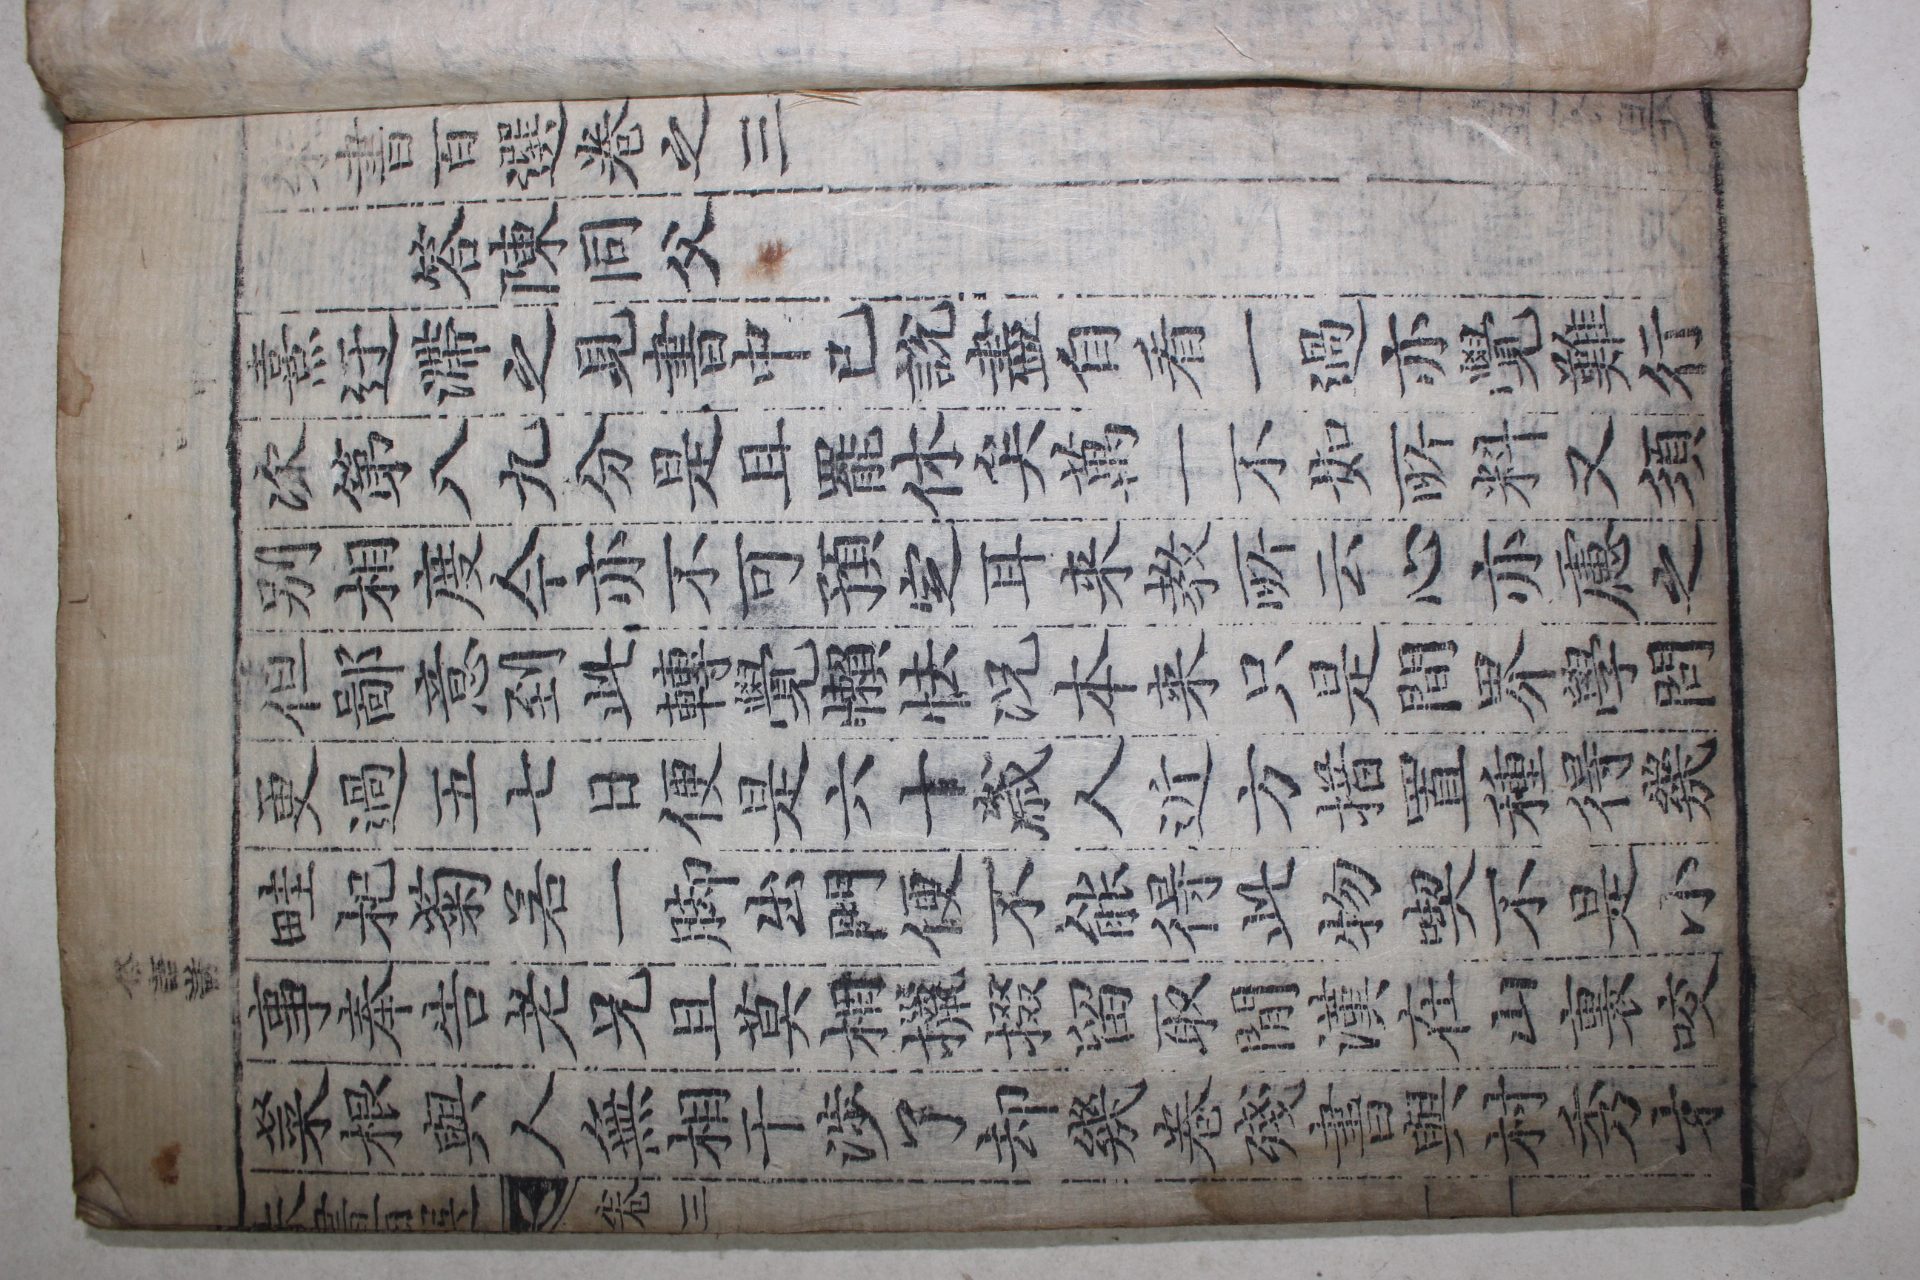 朱書百選卷之三
答陳同父
熹迂滯之見書中已說盡自看一過亦覺難行
次第八九分是且罷休矣萬一不如所料又須
別相度今亦不可預定耳來教所云心亦慮之
但鄙意到此轉覺懶怯況本來只是閒界學問
更過五七日便是六十歲人近方措置種得幾
畦杞菊若一脚出門便不能得此物喫不是小
事奉告老兄且莫相攛掇留取閒漢在山裏咬
菜根與人無相干涉了却幾卷殘書與村秀才
朱書百選 卷三